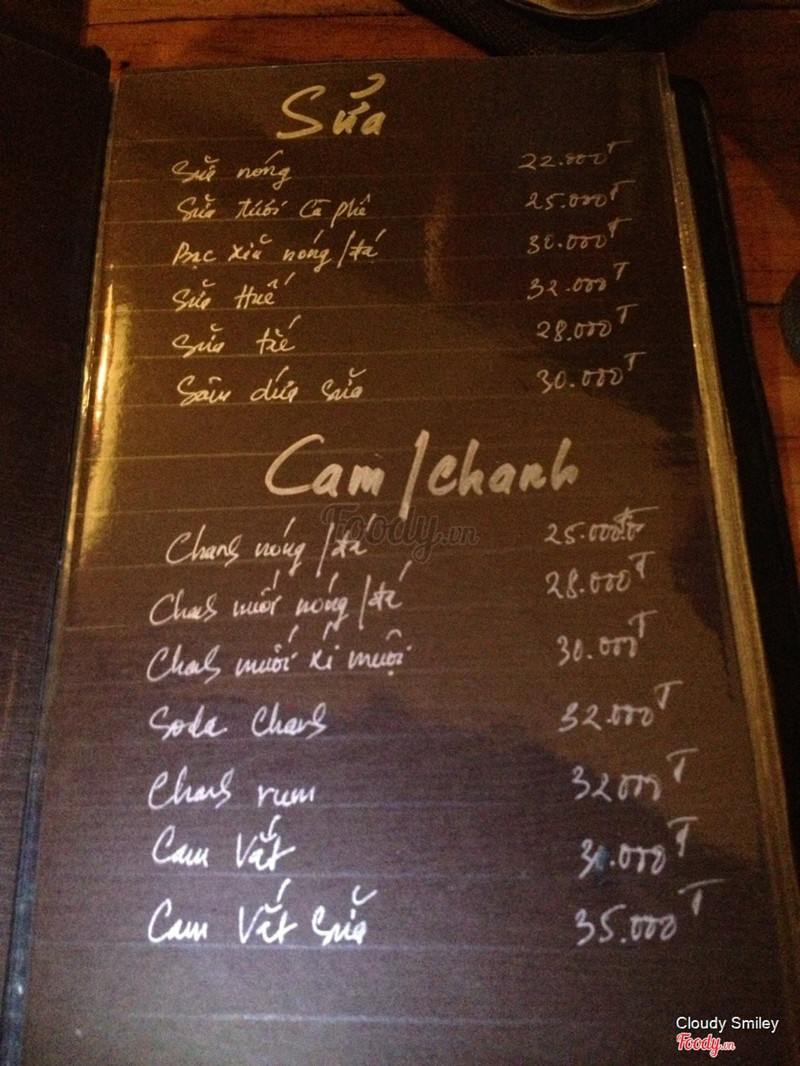 Sửa
Sữa nóng 22.000đ
Sữa tươi cà phê 25.000đ
Bạc xỉu nóng/đá 30.000đ
Sữa Huế 32.000đ
Sữa tắc 28.000đ
Sâm dứa sữa 30.000đ
Cam/chanh
Foody.vn
Chanh nóng/đá 25.000đ
Chanh muối nóng/đá 28.000đ
Chanh muối xí muội 30.000đ
Soda Chanh 32.000đ
Chanh rum 32000đ
Cam Vắt .000đ
Cam Vắt Sữa 35.000đ
Cloudy Smiley
Foody.vn